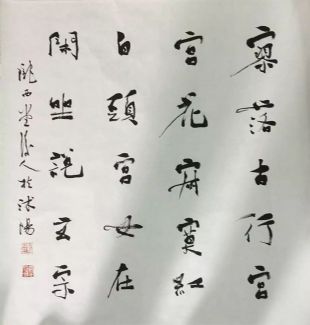 寥落古行宮
宮花寂寞紅
白頭宮女在
閑坐說玄宗
隴西堂後人於沭陽